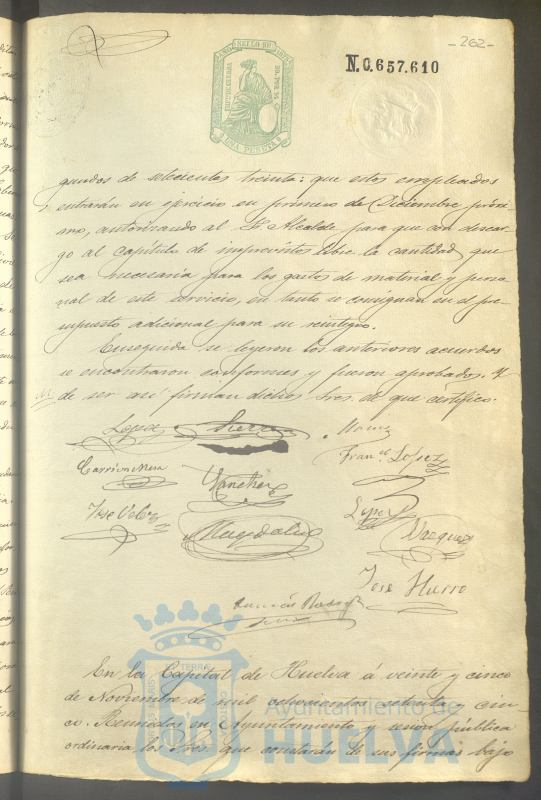 -262-
N.0.657.610
UNA PESETA
guardos de setecientos treinta: que estos empleados
entrarán en ejercicio en primero de Diciembre próxi-
mo, autorizando al Sr. Alcalde para que con descar-
go al capítulo de imprevistos libre la cantidad que
sea necesaria para los gastos de material y perso-
nal de este servicio, en tanto se consignan en el pre-
supuesto adicional para su reintegro.
Enseguida se leyeron los anteriores acuerdos
se encontraron conformes y fueron aprobados. Y
de ser así firman dichos Sres. de que certifico.
Lopez Sierra
Carrion Mera Sanchez Fran.co Lopez
Jose Velez Magdalena Lopez Vazquez
Jose Hurro
En la Capital de Huelva á veinte y cinco
de Noviembre de mil ochocientos setenta y cin-
co. Reunidos en Ayuntamiento y sesion pública
ordinaria los Sres. que constarán de sus firmas bajo
Ayuntamiento de
HUELVA